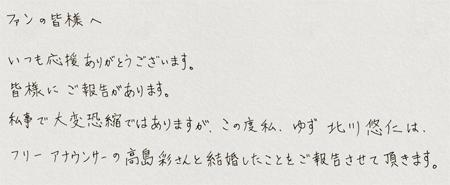 ファンの皆様へ
いつも応援ありがとうございます。
皆様にご報告があります。
私事で大変恐縮ではありますが、この度私、ゆず 北川悠仁は、
フリーアナウンサーの高島彩さんと結婚したことをご報告させて頂きます。